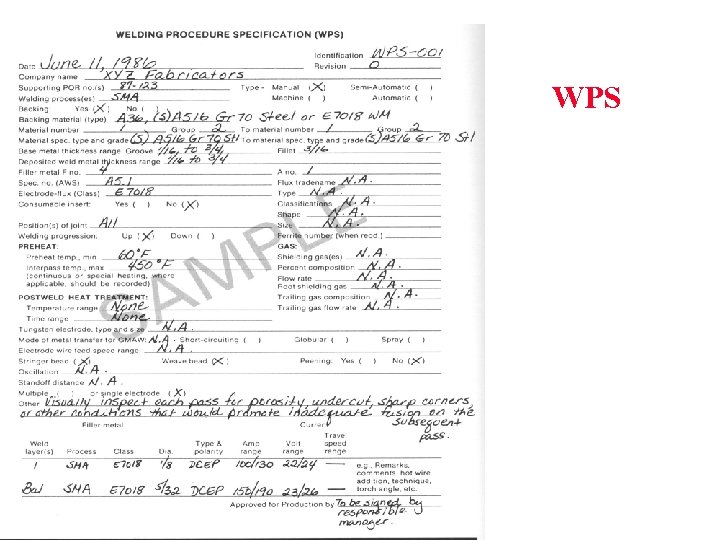 WELDING PROCEDURE SPECIFICATION (WPS)
Identification WPS-001
Date June 11, 1986 Revision 0
Company name XYZ Fabricators
Supporting PQR no.(s) 87-123 Type - Manual (X) Semi-Automatic ( )
Welding process(es) SMA Machine ( ) Automatic ( )
Backing: Yes (X) No ( )
Backing material (type) A36, (S)A516 Gr 70 Steel or E7018 WM
Material number 1 Group 2 To material number 1 Group 2
Material spec. type and grade (S) A516 Gr 70 Stl To material spec. type and grade (S)A516 Gr 70 Stl
Base metal thickness range: Groove 1/16, to 3/4, Fillet 3/16
Deposited weld metal thickness range 1/16 to 3/4
Filler metal F no. 4 A no. 1
Spec. no. (AWS) A5.1 Flux tradename N.A.
Electrode-flux (Class) E7018 Type N.A.
Consumable insert: Yes ( ) No (X) Classifications N.A.
Shape N.A.
Position(s) of joint All Size N.A.
Welding progression: Up (X) Down ( ) Ferrite number (when reqd.)
PREHEAT: GAS:
Preheat temp., min 60°F Shielding gas(es) N.A.
Interpass temp., max 450°F Percent composition N.A.
(continuous or special heating, where Flow rate N.A.
applicable, should be recorded) Root shielding gas N.A.
POSTWELD HEAT TREATMENT: Trailing gas composition N.A.
Temperature range None Trailing gas flow rate N.A.
Time range None
Tungsten electrode, type and size N.A.
Mode of metal transfer for GMAW: N.A. Short-circuiting ( ) Globular ( ) Spray ( )
Electrode wire feed speed range N.A.
Stringer bead (X) Weave bead (X) Peening: Yes ( ) No (X)
Oscillation N.A.
Standoff distance N.A.
Multiple ( ) or single electrode (X)
Other Visually inspect each pass for porosity, undercut, sharp corners,
or other conditions that would promote inadequate fusion on the
subsequent
pass.
Filler metal Current
Weld layer(s) Process Class Dia. Type & polarity Amp range Volt range Travel speed range
1 SMA E7018 1/8 DCEP 100/130 22/24 — e.g., Remarks, comments, hot wire
Bal SMA E7018 5/32 DCEP 150/190 23/26 — addition, technique, torch angle, etc.
Approved for Production by To be signed by
responsible
manager.
SAMPLE
WPS